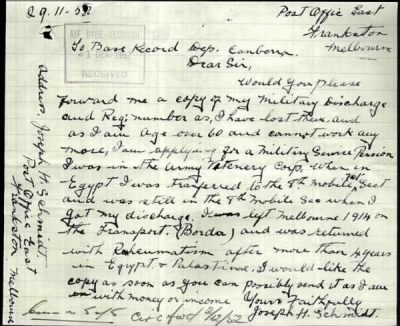 29.11.52
Post Offic East
Frankston
Melbourne
A.I.F. BASE RECORDS
1 DEC 1952
RECEIVED
To Base Record Dep. Canberra.
Dear Sir,
Would you please
forward me a copy of my Military Discharge
and Reg. number as, I have lost them, and
as I am age over 60 and cannot work any
more, I am applying for a Military Service Pension
I was in the Army Vetenery Corp, when in
Egypt I was tranfered to the 8th Mobile Vet Sect
and was still in the 8th Mobile Sec when I
got my discharge. I was left Melbourne 1914 on
the Transport. (Borda) and was returned
with Reheumatism after more than 4 years
in Egypt & Palastine. I would like the
copy as soon as you can possibly send it as I am
with money or income
Yours Faithfully
Joseph H. Schmidt.
Address, Joseph H. Schmidt
Post Offic East
Frankston Melbourne